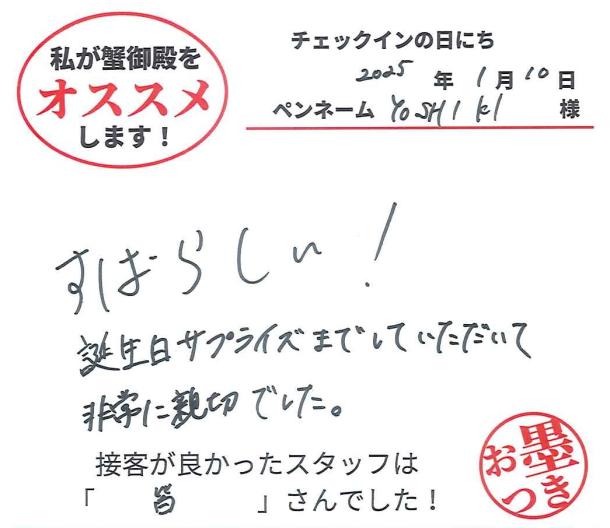 私が蟹御殿を
オススメ
します！
チェックインの日にち
2025 年 1月 10日
ペンネーム YOSHIKI 様
すばらしい！
誕生日サプライズまでしていただいて
非常に親切でした。
接客が良かったスタッフは
「 皆 」さんでした！
お墨
つき